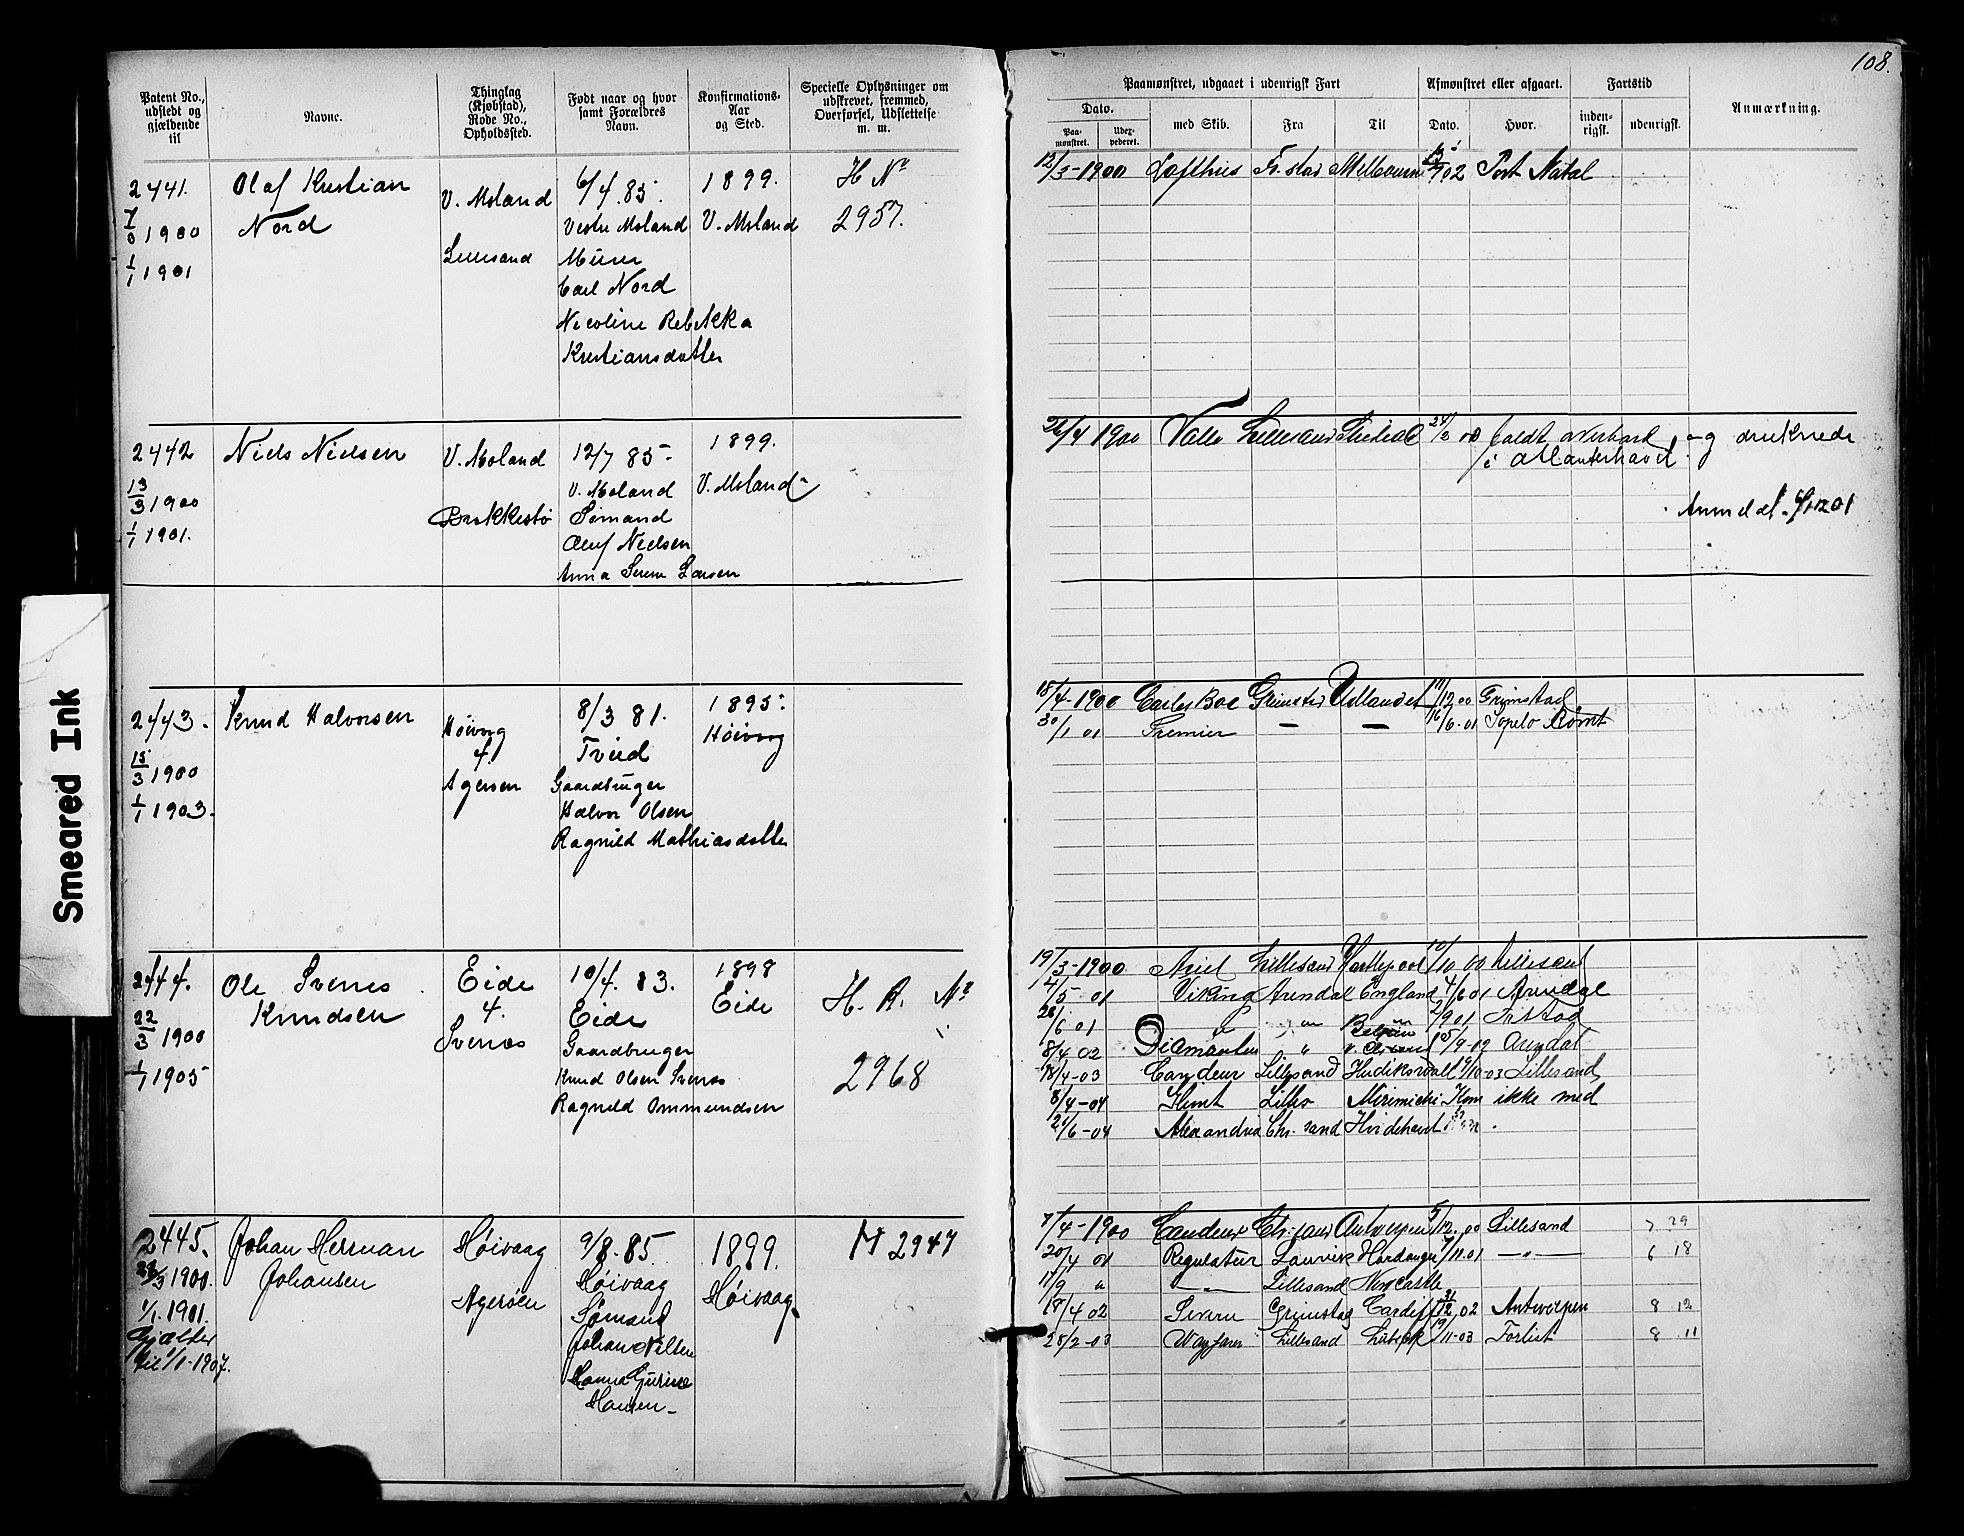 108.
Patent No., udstedt og gjældende til
Navne.
Thinglag (Kjøbstad), Rode No., Opholdssted.
Født naar og hvor samt Forældres Navn.
Konfirmations-Aar og Sted.
Specielle Oplysninger om udskrevet, fremmed, Overførsel, Udslettelse m. m.
Paamønstret, udgaaet i udenrigsk Fart
Afmønstret eller afgaaet.
Fartstid
Anmærkning.
Dato.
med Skib.
Fra
Til
Dato.
Hvor.
inden-rigsk.
udenrigsk.
Paa-mønstret.
Udex-pederet.
2441.
1900
1/1 1901
Olaf Kristian
Nord
V. Moland
Lillesand
6/4. 85.
Vestre Moland
Murer
Carl Nord
Nicoline Rebekka
Kristiansdatter
1899.
V. Moland
H No
2957.
12/3-1900 Lofthus Fr.stad Melbourne 02 Port Natal
2442
13/3 1900
1/1 1901.
Niels Nielsen
V. Moland
Brekkestø
12/7 85.
V. Moland
Sømand
Oluf Nielsen
Anna Serene Larsen
1899.
V. Moland
26/4 1900 Lillesand 00 faldt overbord og druknede
i Atlanterhavet.
Anmeldt
2443.
15/3 1900
1/1 1903.
Knud Halvorsen
Høivog
4.
Agerøen
8/3 81.
Tveid
Gaardbruger
Halvor Olsen
Ragnild Mathiasdatter
1895.
Høivog
18/4-1900 Grimstad Udlandet /12 00 Grimstad
30/1 01 Premier — — 16/6-01 Rømt
2444.
22/3 1900
1/1 1905
Ole Svenes
Knudsen
Eide
4.
Svenes
10/4. 83.
Eide
Gaardbruger
Knud Olsen Svenes
Ragnild Ommundsen
1898
Eide
H. R. No
2968
19/3-1900 Ariel Lillesand Hartlepool /10 00 Lillesand
4/5 01 Viking Arendal England 4/6 01 Arendal
28/6 01 " " 2/9 01
8/4 02 Diamanten " /9-02 Arendal
18/4-03 Candeur Lillesand Hudiksvall 19/10-03 Lillesand
8/4-04 Lilles Mirimichi Kom ikke med
2/6-04 Alexandra Chr. sand Hvidehavet
2445.
1900.
1/1. 1901.
Gjælder
til 1/1-1907.
Johan Herman
Johansen
Høivaag
Agerøen
9/8. 85.
Høivaag
Sømand
Johan Nilsen
Hanna Gurine
Hansen
1899.
Høivaag
H 2947
7/4-1900 Candeur Chr.sand Antwerpen 5/12.00 Lillesand 7 29
20/4 01 Regulatur Laurvik Hardanger /11.01 —"— 6 18
17/9 " —"— Lillesand Newcastle
18/4 02 Severn Grimstad Cardiff 31/12 02 Antwerpen 8 12
28/2-03 Wayfarer Lillesand Lübeck /11-03 Forlist 8 11
Smeared Ink